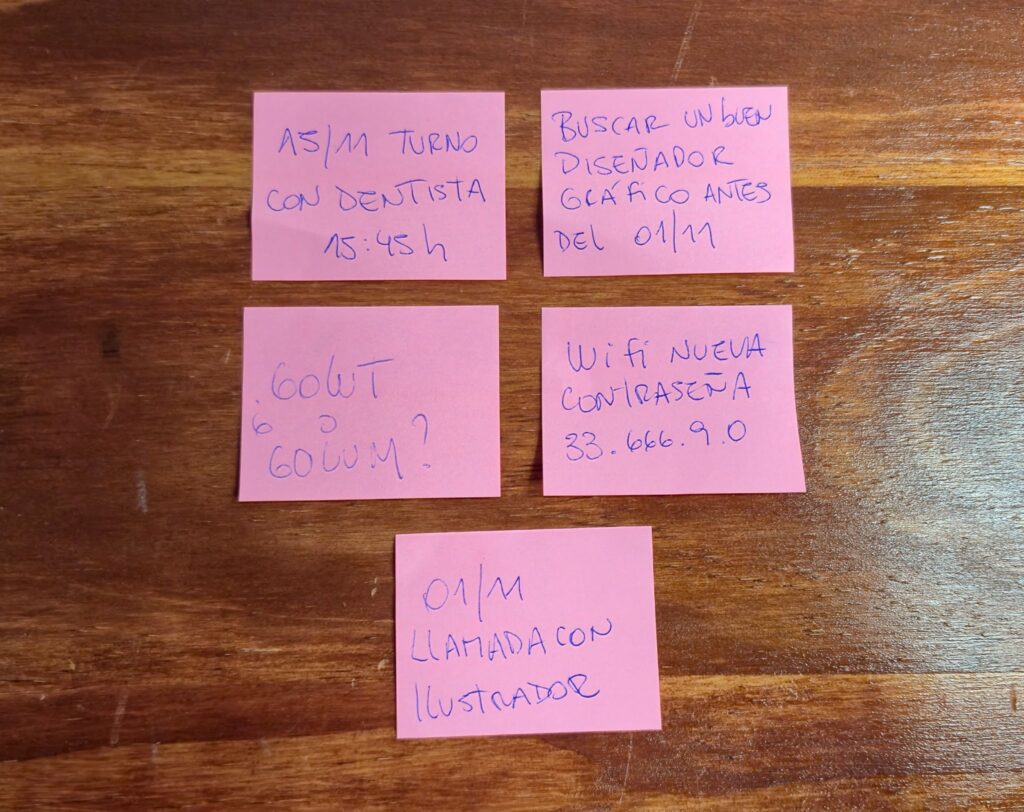 15/11 TURNO
CON DENTISTA
15:45h
BUSCAR UN bUEN
DISEÑADOR
GRÁFiCO ANTES
DEL 01/11
.GOLUT
6 O
GOLUM?
Wifi NUEVA
CONTRASEÑA
33.666.9.0
01/11
LLAMADA CON
ILUSTRADOR